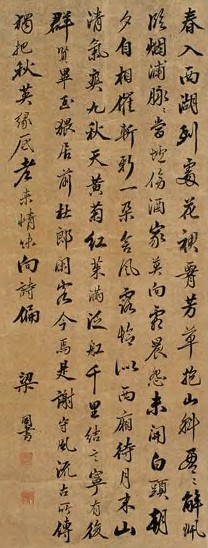 春入西湖到處花裙腰芳草抱山斜盈盈解珮
臨烟浦脉脉當壚傍酒家莫向霜晨怨未開白頭朝
夕自相催斬新一朵含風露恰似西廂待月来山
清氣爽九秋天黄菊紅茱滿泛船千里結言寧有後
群賢畢至猥居前杜郎閒客今焉是謝守風流古所傳
獨把秋英緣底老来情味向詩偏
梁